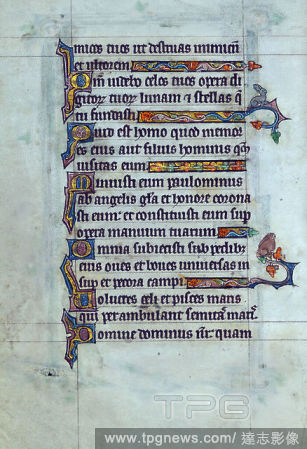 imicos tuos ut destruas inimicū
et ultorem
Qm̄ videbo celos tuos opera di
gitorꝝ tuorꝝ lunam et stellas q̄
tu fundasti
Quid est homo quod memor
es eius aut filius hominis qm̄
visitas eum
Minuisti eum paulominus
ab angelis gl̄a et honore corona
sti eum et constituisti eum sup
opera manuum tuarum
Omnia subiecisti sub pedibꝫ
eius oves et boves universas in
sup et pecora campi
Volucres celi et pisces maris
qui perambulant semitas maris
Domine dominus nr̄ quam
TPG
www.tpgnews.com/達志影像